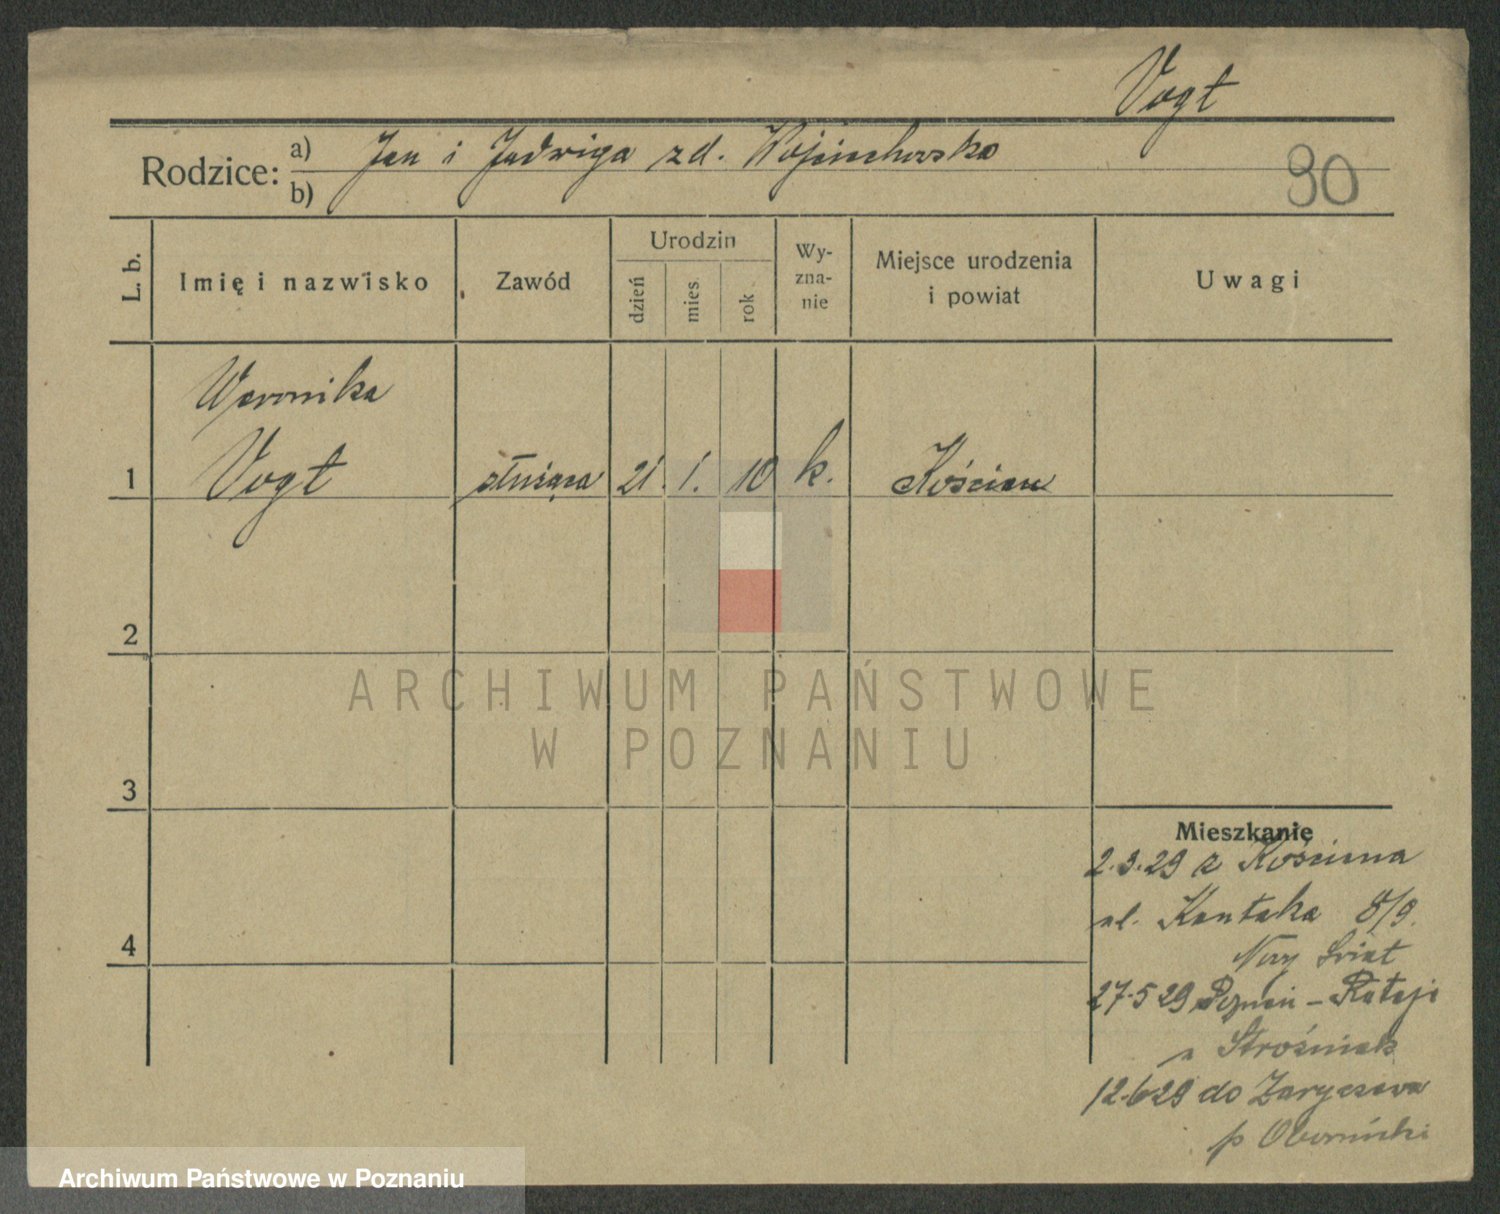 Vogt
Rodzice: a) Jan i Jadwiga zd. Wojciechowska
b)
30
L. b.
Imię i nazwisko
Zawód
Urodzin
dzień
mies.
rok
Wy-
zna-
nie
Miejsce urodzenia
i powiat
Uwagi
Weronika
1 Vogt służąca 21. 1. 10 k. Kościan
2
3
4
ARCHIWUM PAŃSTWOWE
W POZNANIU
Mieszkanie
2.3.29 z Kościana
ul. Kantaka 8/9.
Nowy Świat
27.5 29 Poznań - Rataje
u Stróżniak
12.6 29 do
p Obornicki
Archiwum Państwowe w Poznaniu